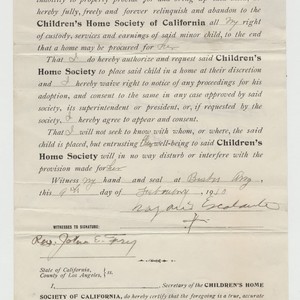 hereby fully, freely and forever relinquish and abandon to the
Children's Home Society of California all my right
of custody, services and earnings of said minor child, to the end
that a home may be procured for her
That I do hereby authorize and request said Children's
Home Society to place said child in a home at their discretion
and I hereby waive right to notice of any proceedings for his
adoption, and consent to the same in any case approved by said
society, its superintendent or president, or, if requested by the
society, I hereby agree to appear and consent.
That I will not seek to know with whom, or where, the said
child is placed, but entrusting well-being to said Children's
Home Society will in no way disturb or interfere with the
provision made for her
Witness my hand and seal at
this 9th day of February 1910
WITNESSED TO SIGNATURE:
Rev. John E.
State of California,
County of Los Angeles, } ss.
I, Secretary of the CHILDREN'S HOME
SOCIETY OF CALIFORNIA, do hereby certify that the foregoing is a true, accurate